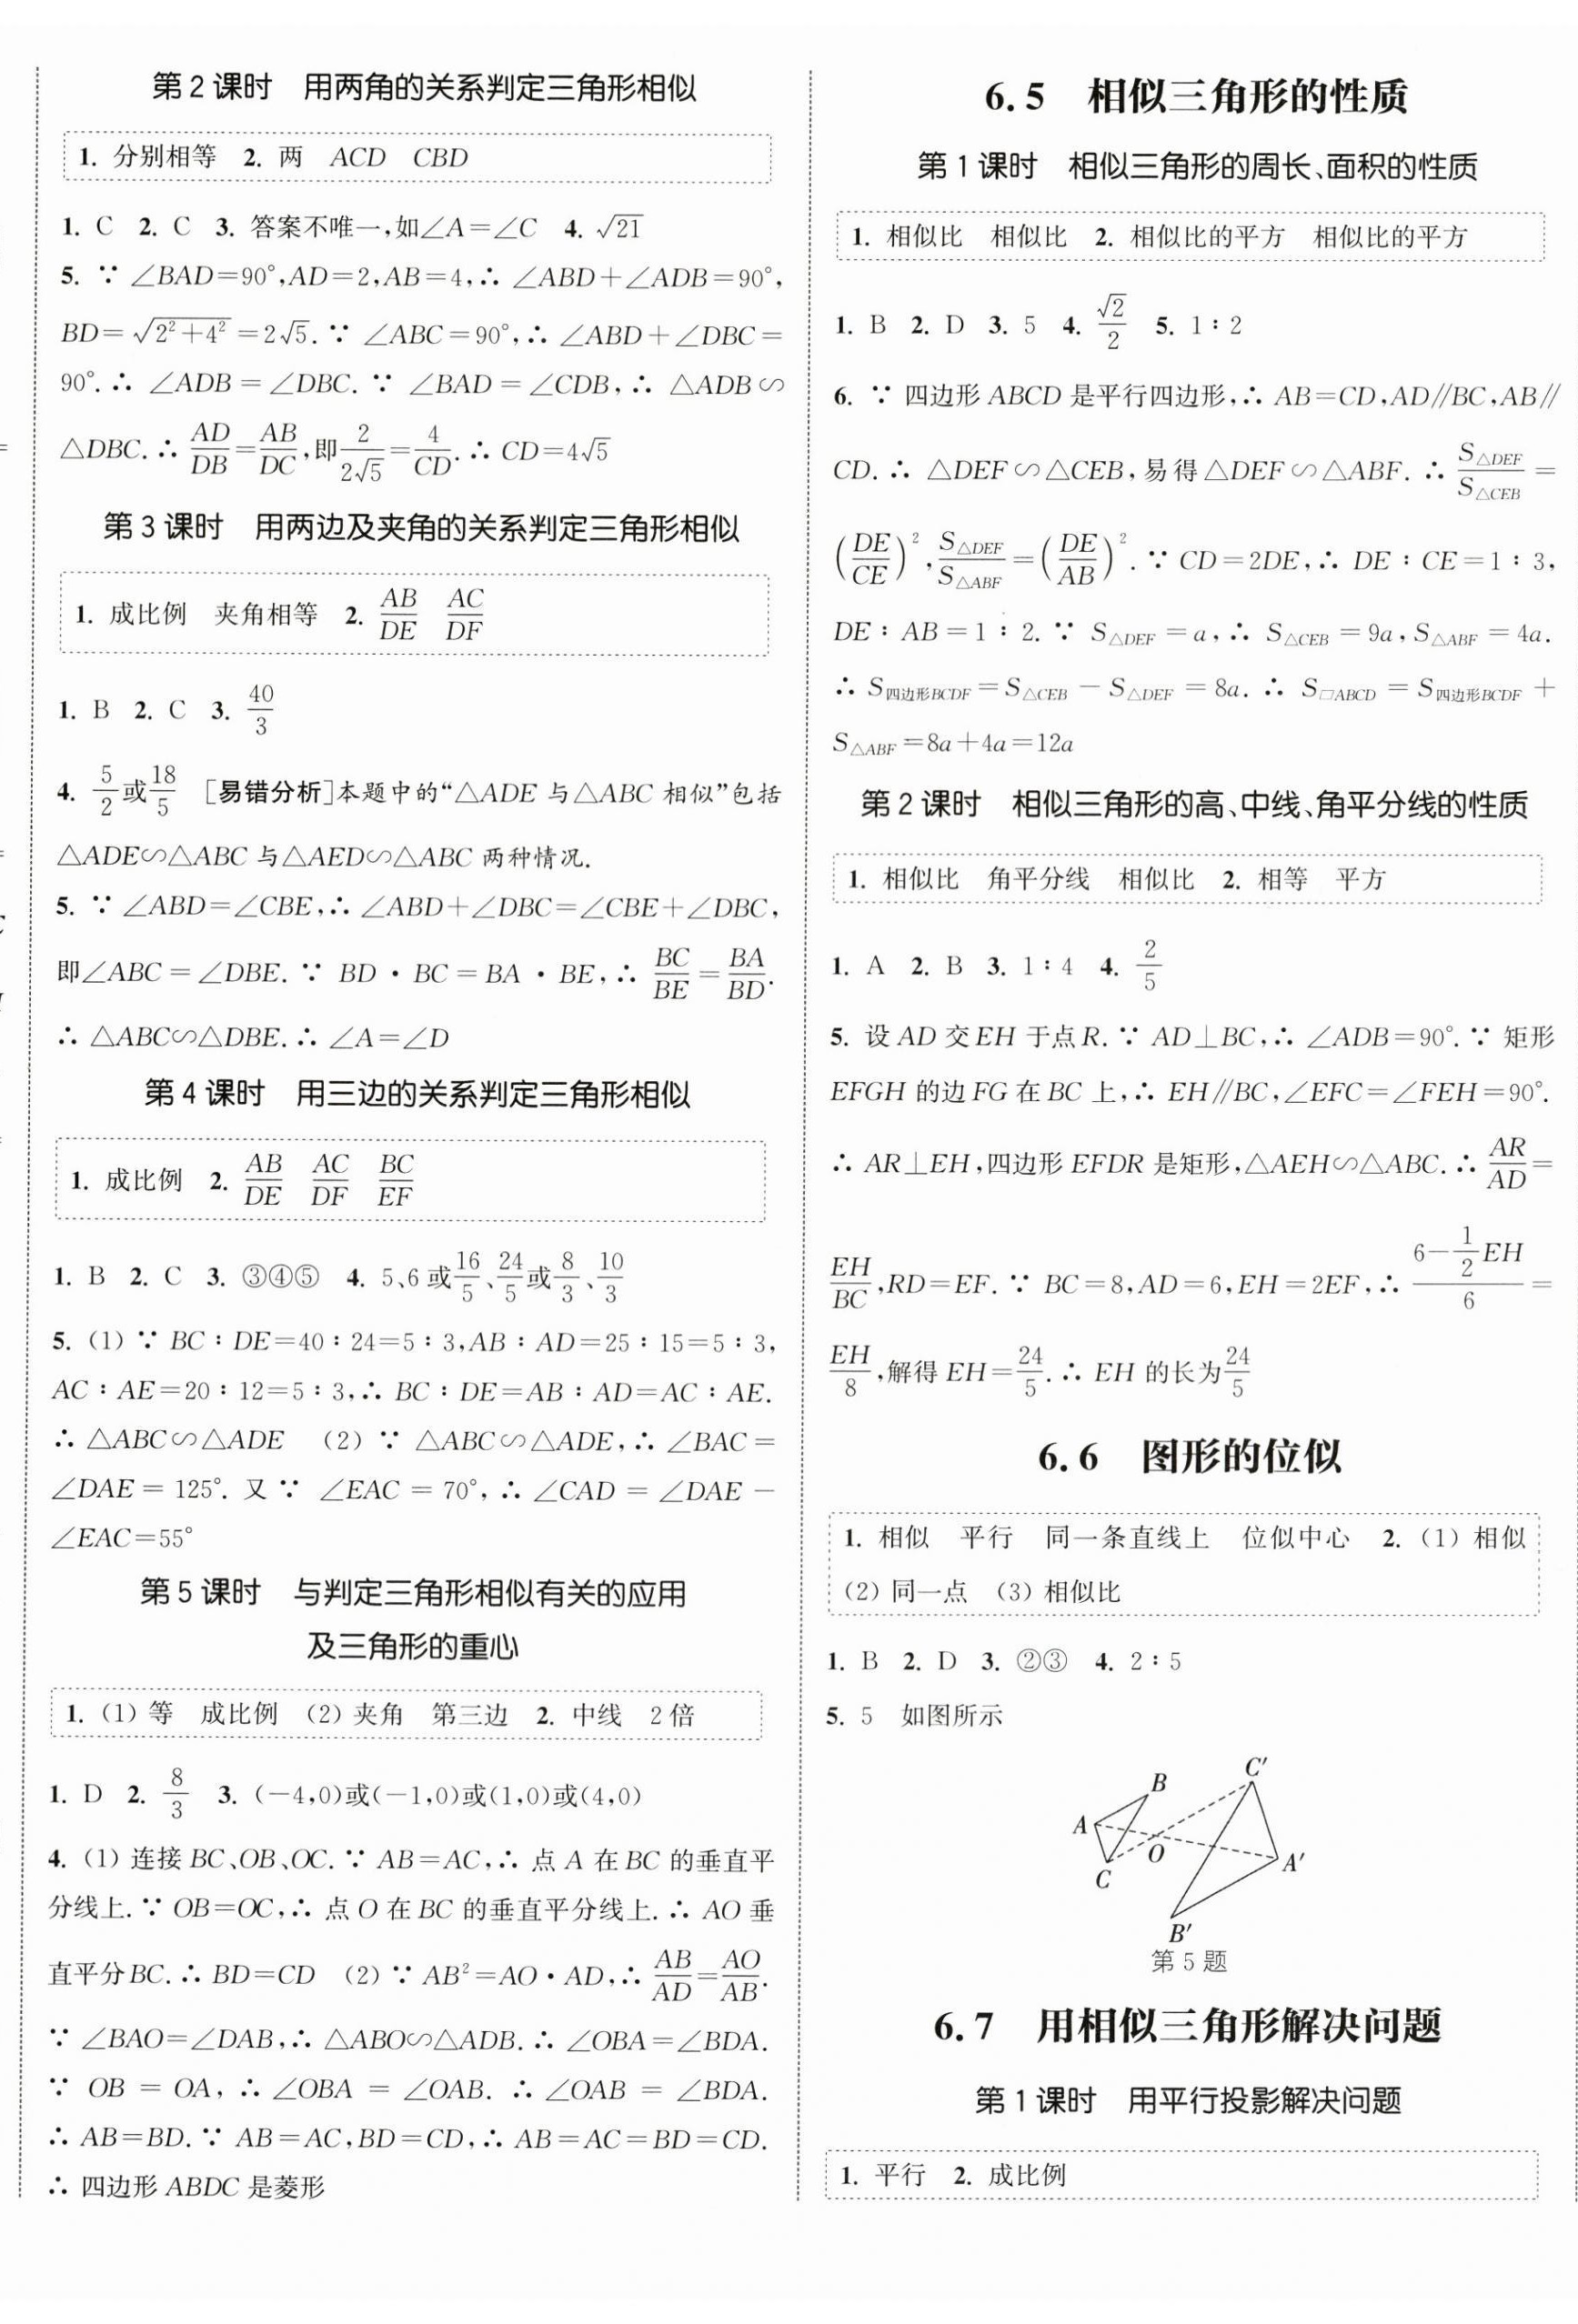 第2课时　用两角的关系判定三角形相似
1. 分别相等　2. 两　ACD　CBD
1. C　2. C　3. 答案不唯一,如∠A=∠C　4. √21
5. ∵ ∠BAD=90°,AD=2,AB=4,∴ ∠ABD+∠ADB=90°,
BD=√(2²+4²)=2√5. ∵ ∠ABC=90°,∴ ∠ABD+∠DBC=
90°. ∴ ∠ADB=∠DBC. ∵ ∠BAD=∠CDB,∴ △ADB∽
△DBC. ∴ AD/DB=AB/DC,即2/(2√5)=4/CD. ∴ CD=4√5
第3课时　用两边及夹角的关系判定三角形相似
1. 成比例　夹角相等　2. AB/DE　AC/DF
1. B　2. C　3. 40/3
4. 5/2或18/5　[易错分析]本题中的“△ADE与△ABC相似”包括
△ADE∽△ABC与△AED∽△ABC两种情况.
5. ∵ ∠ABD=∠CBE,∴ ∠ABD+∠DBC=∠CBE+∠DBC,
即∠ABC=∠DBE. ∵ BD·BC=BA·BE,∴ BC/BE=BA/BD.
∴ △ABC∽△DBE. ∴ ∠A=∠D
第4课时　用三边的关系判定三角形相似
1. 成比例　2. AB/DE　AC/DF　BC/EF
1. B　2. C　3. ③④⑤　4. 5、6或16/5、24/5或8/3、10/3
5. (1) ∵ BC∶DE=40∶24=5∶3,AB∶AD=25∶15=5∶3,
AC∶AE=20∶12=5∶3,∴ BC∶DE=AB∶AD=AC∶AE.
∴ △ABC∽△ADE　(2) ∵ △ABC∽△ADE,∴ ∠BAC=
∠DAE=125°. 又∵ ∠EAC=70°,∴ ∠CAD=∠DAE-
∠EAC=55°
第5课时　与判定三角形相似有关的应用
及三角形的重心
1. (1) 等　成比例　(2) 夹角　第三边　2. 中线　2倍
1. D　2. 8/3　3. (-4,0)或(-1,0)或(1,0)或(4,0)
4. (1) 连接BC、OB、OC. ∵ AB=AC,∴ 点A在BC的垂直平
分线上. ∵ OB=OC,∴ 点O在BC的垂直平分线上. ∴ AO垂
直平分BC. ∴ BD=CD　(2) ∵ AB²=AO·AD,∴ AB/AD=AO/AB.
∵ ∠BAO=∠DAB,∴ △ABO∽△ADB. ∴ ∠OBA=∠BDA.
∵ OB=OA,∴ ∠OBA=∠OAB. ∴ ∠OAB=∠BDA.
∴ AB=BD. ∵ AB=AC,BD=CD,∴ AB=AC=BD=CD.
∴ 四边形ABDC是菱形
6.5　相似三角形的性质
第1课时　相似三角形的周长、面积的性质
1. 相似比　相似比　2. 相似比的平方　相似比的平方
1. B　2. D　3. 5　4. √2/2　5. 1∶2
6. ∵ 四边形ABCD是平行四边形,∴ AB=CD,AD∥BC,AB∥
CD. ∴ △DEF∽△CEB,易得△DEF∽△ABF. ∴ S△DEF/S△CEB=
(DE/CE)²,S△DEF/S△ABF=(DE/AB)². ∵ CD=2DE,∴ DE∶CE=1∶3,
DE∶AB=1∶2. ∵ S△DEF=a,∴ S△CEB=9a,S△ABF=4a.
∴ S四边形BCDF=S△CEB-S△DEF=8a. ∴ S▱ABCD=S四边形BCDF+
S△ABF=8a+4a=12a
第2课时　相似三角形的高、中线、角平分线的性质
1. 相似比　角平分线　相似比　2. 相等　平方
1. A　2. B　3. 1∶4　4. 2/5
5. 设AD交EH于点R. ∵ AD⊥BC,∴ ∠ADB=90°. ∵ 矩形
EFGH的边FG在BC上,∴ EH∥BC,∠EFC=∠FEH=90°.
∴ AR⊥EH,四边形EFDR是矩形,△AEH∽△ABC. ∴ AR/AD=
EH/BC,RD=EF. ∵ BC=8,AD=6,EH=2EF,∴ (6-1/2EH)/6=
EH/8,解得EH=24/5. ∴ EH的长为24/5
6.6　图形的位似
1. 相似　平行　同一条直线上　位似中心　2. (1) 相似
(2) 同一点　(3) 相似比
1. B　2. D　3. ②③　4. 2∶5
5. 5　如图所示
C′
B
A
O
A′
C
B′
第5题
6.7　用相似三角形解决问题
第1课时　用平行投影解决问题
1. 平行　2. 成比例